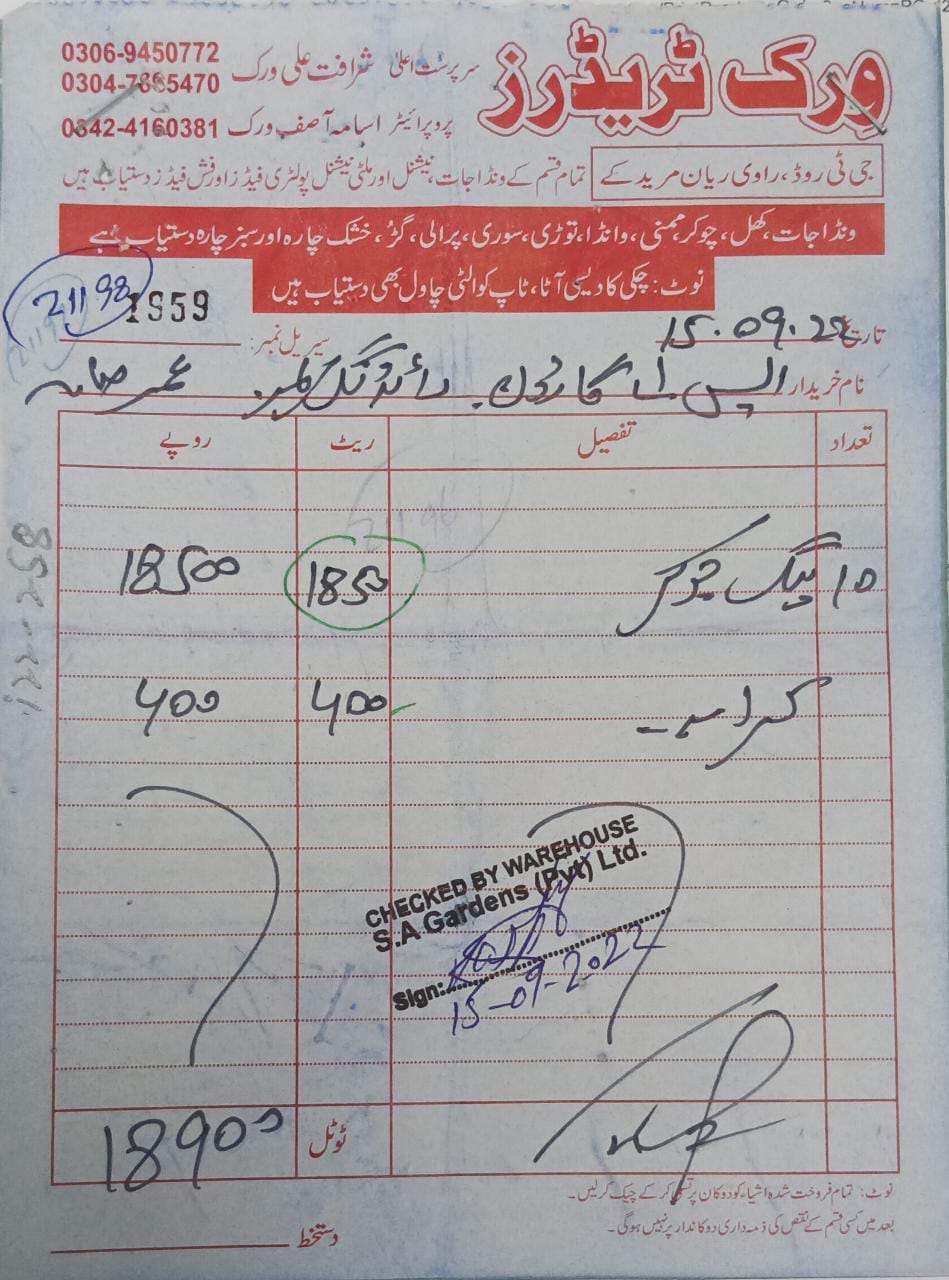 ورک ٹریڈرز
سرپرست اعلیٰ شرافت علی ورک 0306-9450772
0304-7885470
پروپرائیٹر اسامہ آصف ورک 0342-4160381
جی ٹی روڈ، راوی ریان مریدکے
تمام قسم کے ونڈا جات، نیشنل اور ملٹی نیشنل پولٹری فیڈز اور فش فیڈز دستیاب ہیں
ونڈا جات، کھل، چوکر، ممنی، وانڈا، توڑی، سوری، پرالی، گڑ، خشک چارہ اور سبز چارہ دستیاب ہے
نوٹ: چکی کا دیسی آٹا، ٹاپ کوالٹی چاول بھی دستیاب ہیں
21198
تاریخ 15.09.22 سیریل نمبر: 1959
نام خریدار ایس اے گارڈن۔ عمر صاحب
تعداد تفصیل ریٹ روپے
21198
10 بیگ چوکر 1850 18500
کرایہ 400 400
CHECKED BY WAREHOUSE
S.A Gardens (Pvt) Ltd.
Sign:
15-09-2022
ٹوٹل 18900
نوٹ: تمام فروخت شدہ اشیاء کو دوکان پر تسلی کر کے چیک کر لیں۔
بعد میں کسی قسم کے نقص کی ذمہ داری دوکاندار پر نہیں ہوگی۔
دستخط